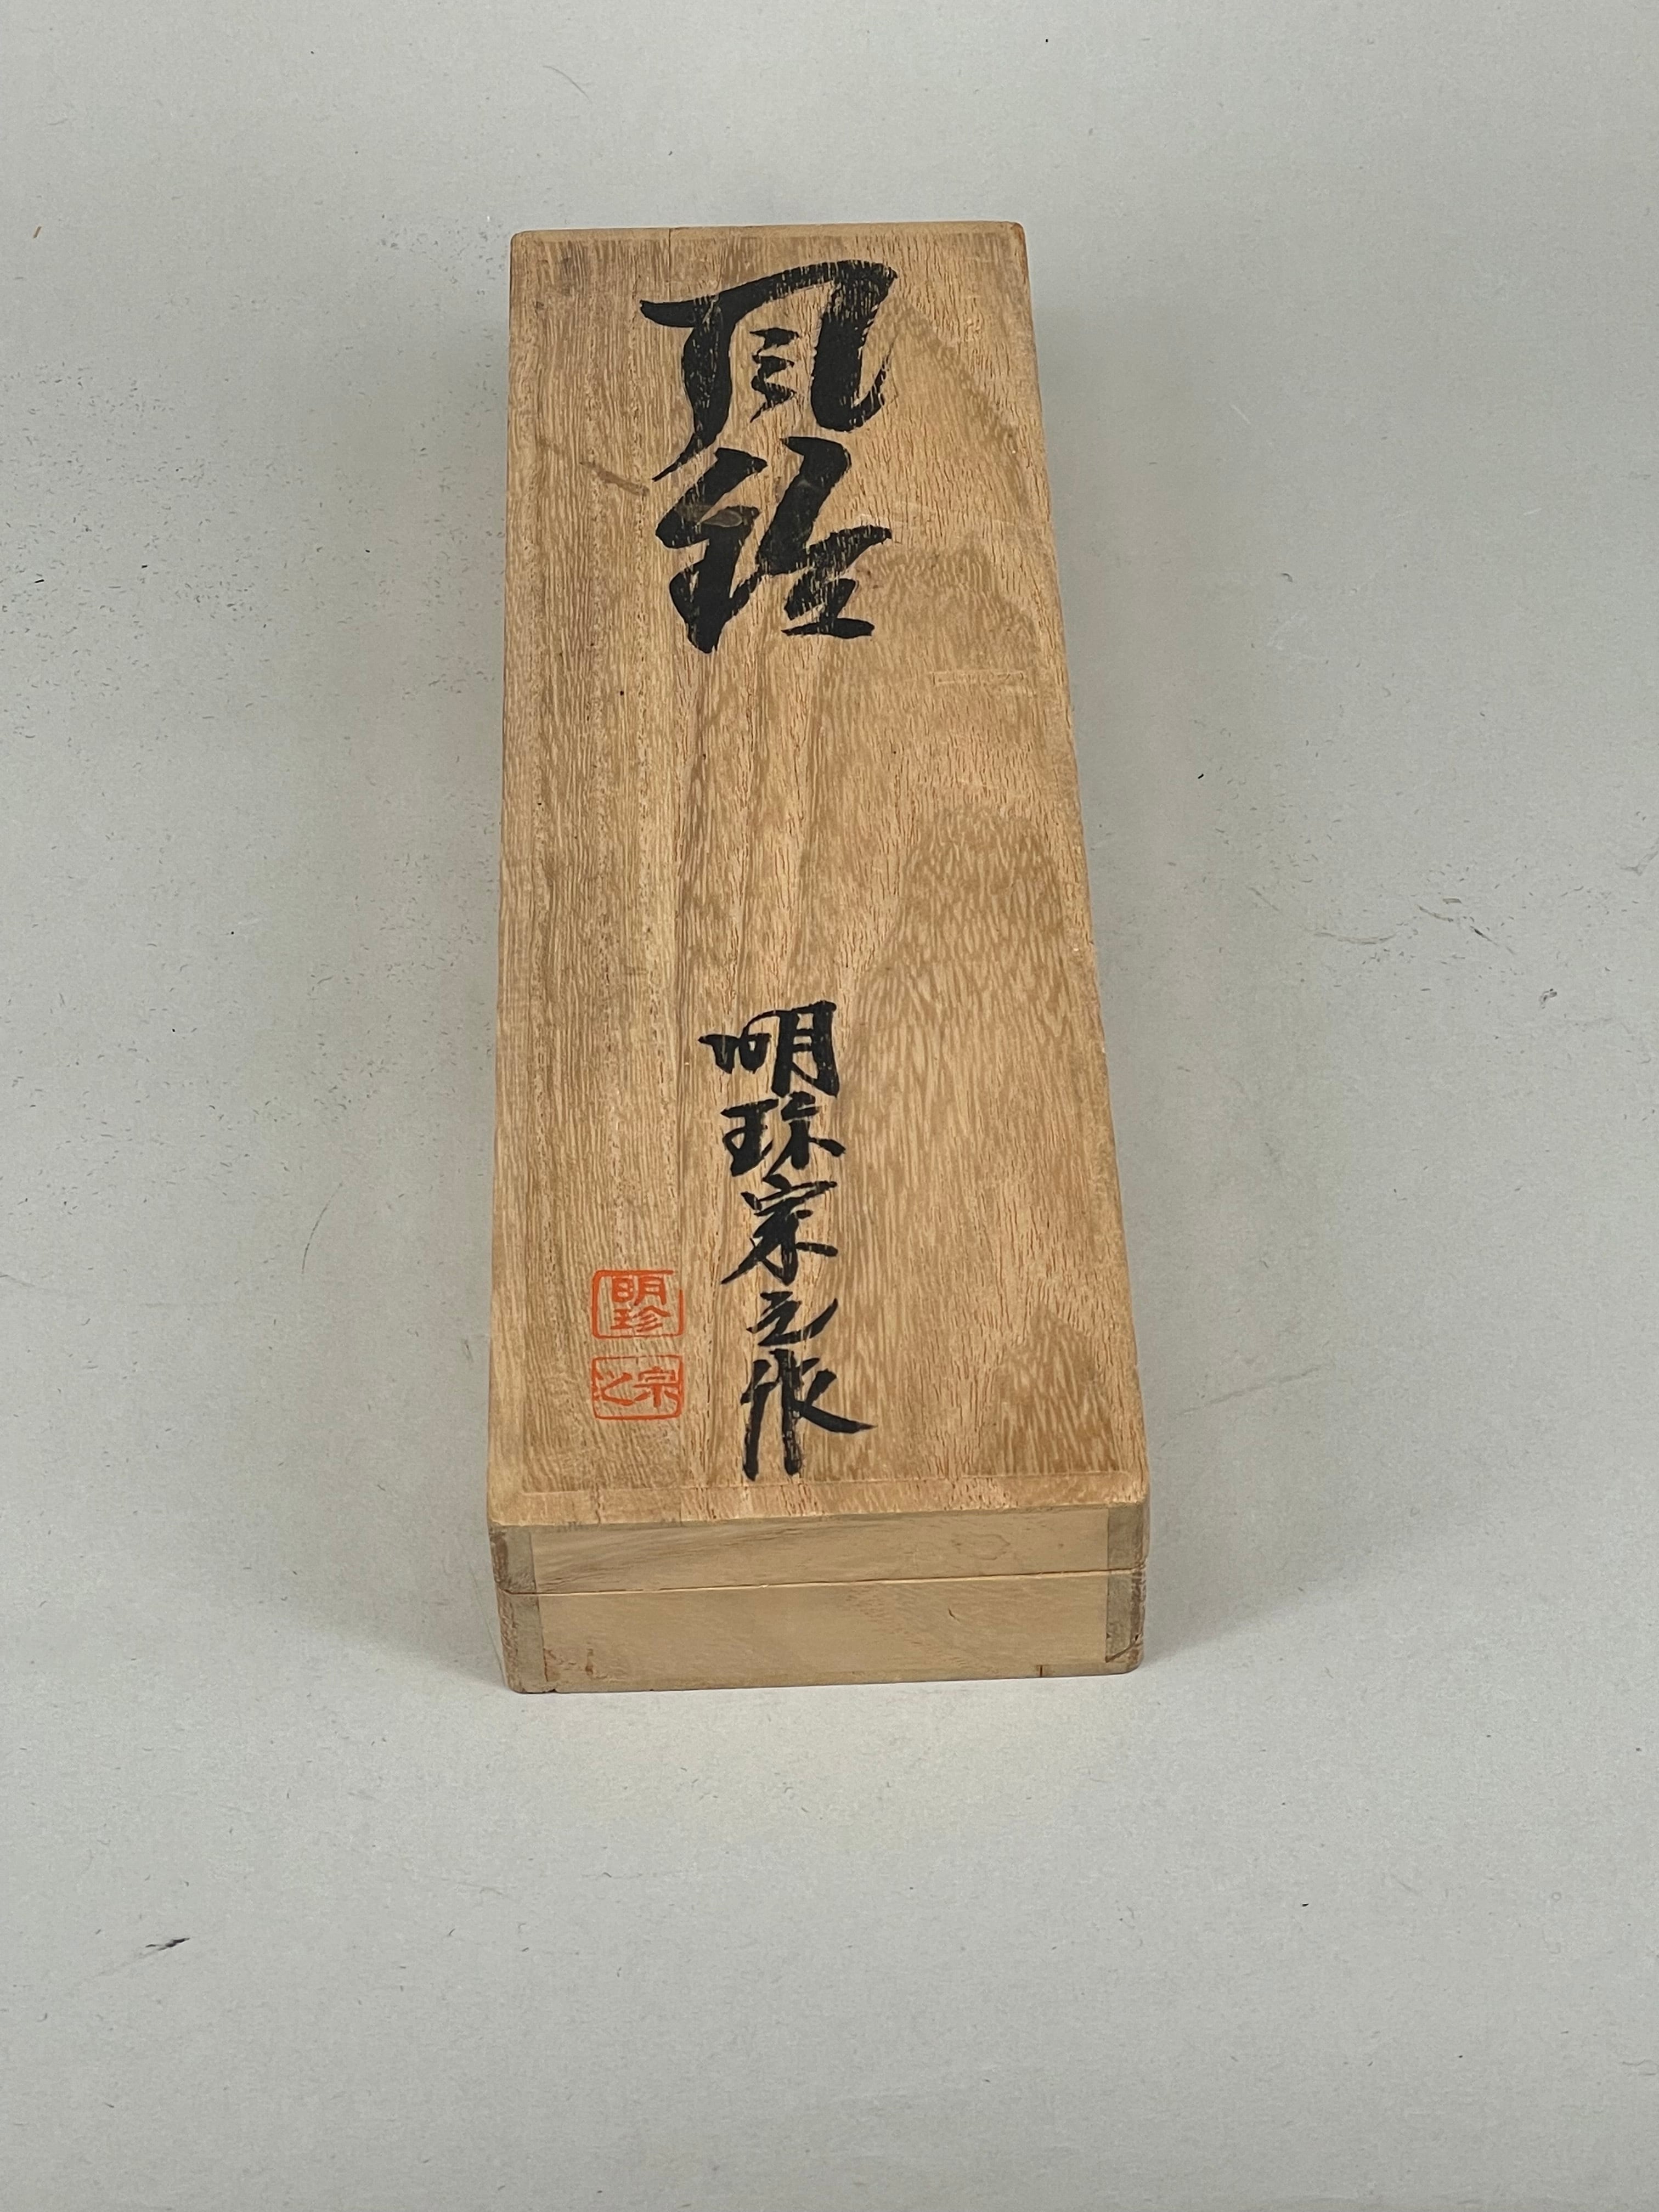 風鈴
明珍宗之作
明珍
宗之